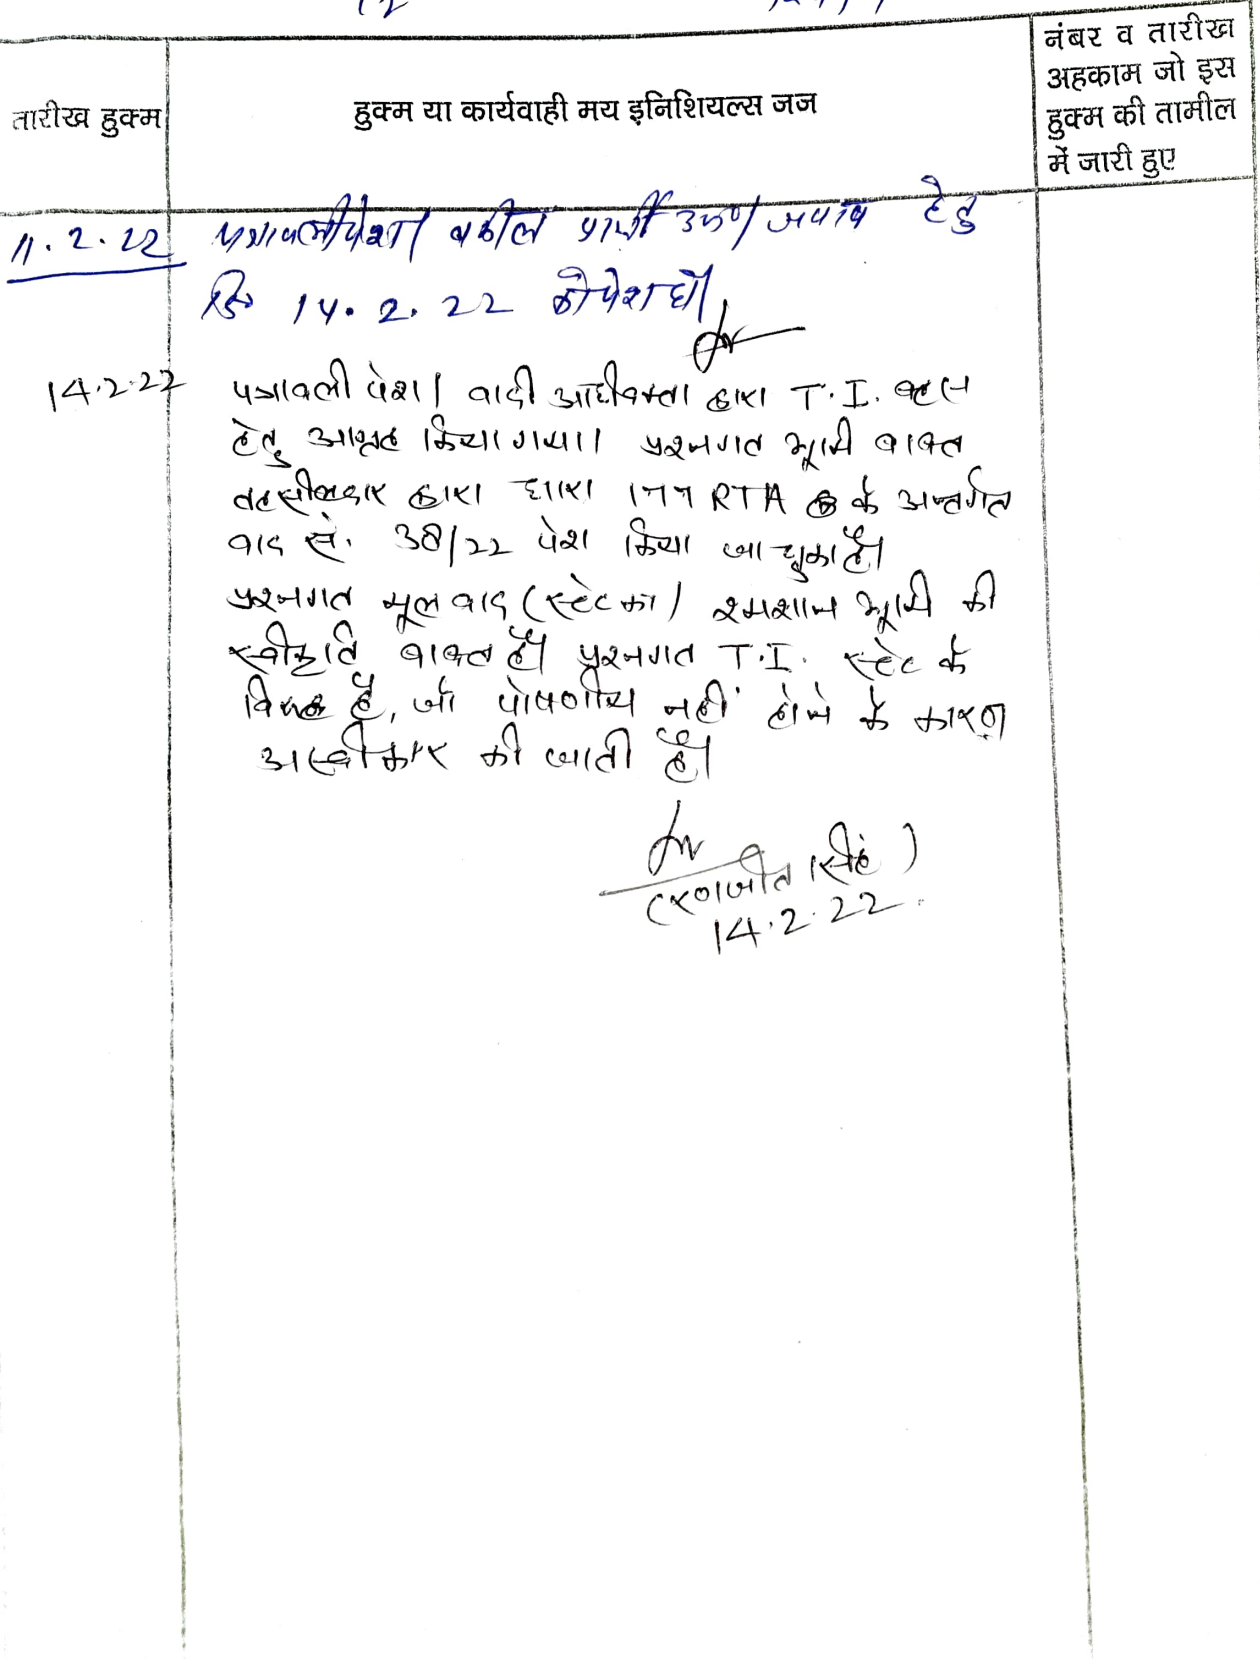 नंबर व तारीख
अहकाम जो इस
हुक्म की तामील
में जारी हुए
तारीख हुक्म
हुक्म या कार्यवाही मय इनिशियल्स जज
11.2.22 पत्रावली पेश। वकील प्रार्थी उप०। जवाब हेतु
दि० 14.2.22 को पेश हो।
14.2.22 पत्रावली पेश। वादी अधिवक्ता द्वारा T.I. बहस
हेतु आग्रह किया गया। प्रश्नगत भूमि बाबत
तहसीलदार द्वारा धारा 177 RTA के अन्तर्गत
वाद सं. 38/22 पेश किया जा चुका है।
प्रश्नगत मूल वाद (स्टेट का) श्मशान भूमि की
स्वीकृति बाबत है। प्रश्नगत T.I. स्टेट के
विरुद्ध है, जो पोषणीय नहीं होने के कारण
अस्वीकार की जाती है।
(रणजीत सिंह)
14.2.22